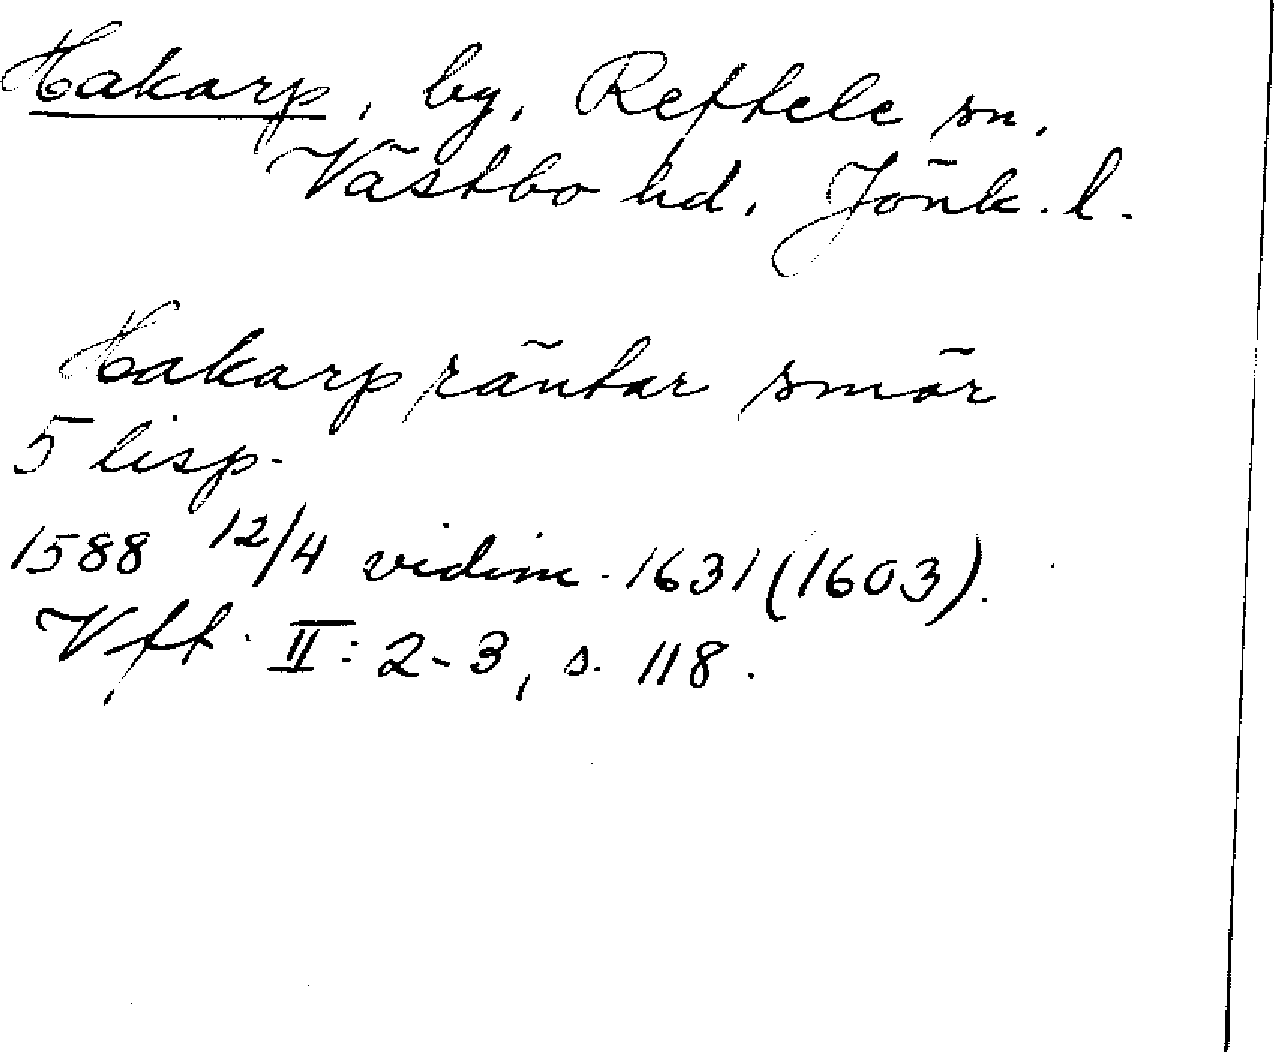 Hakarp, by, Reftele sn.
Västbo hd, Jönk. l.
Hakarp räntar smör
5 lisp.
1588 12/4 vidim. 1631 (1603).
Vft. II: 2-3, s. 118.